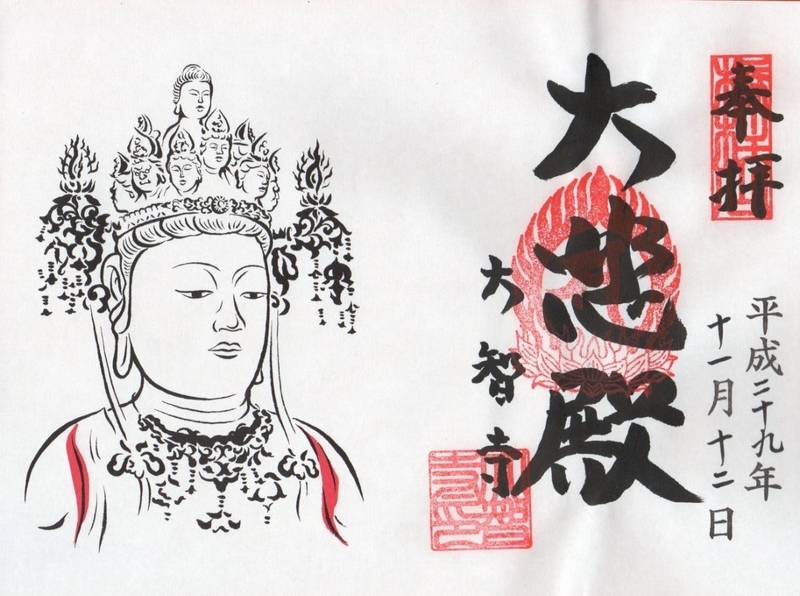 奉拝
平成二十九年
十一月十二日
大悲殿
大智寺